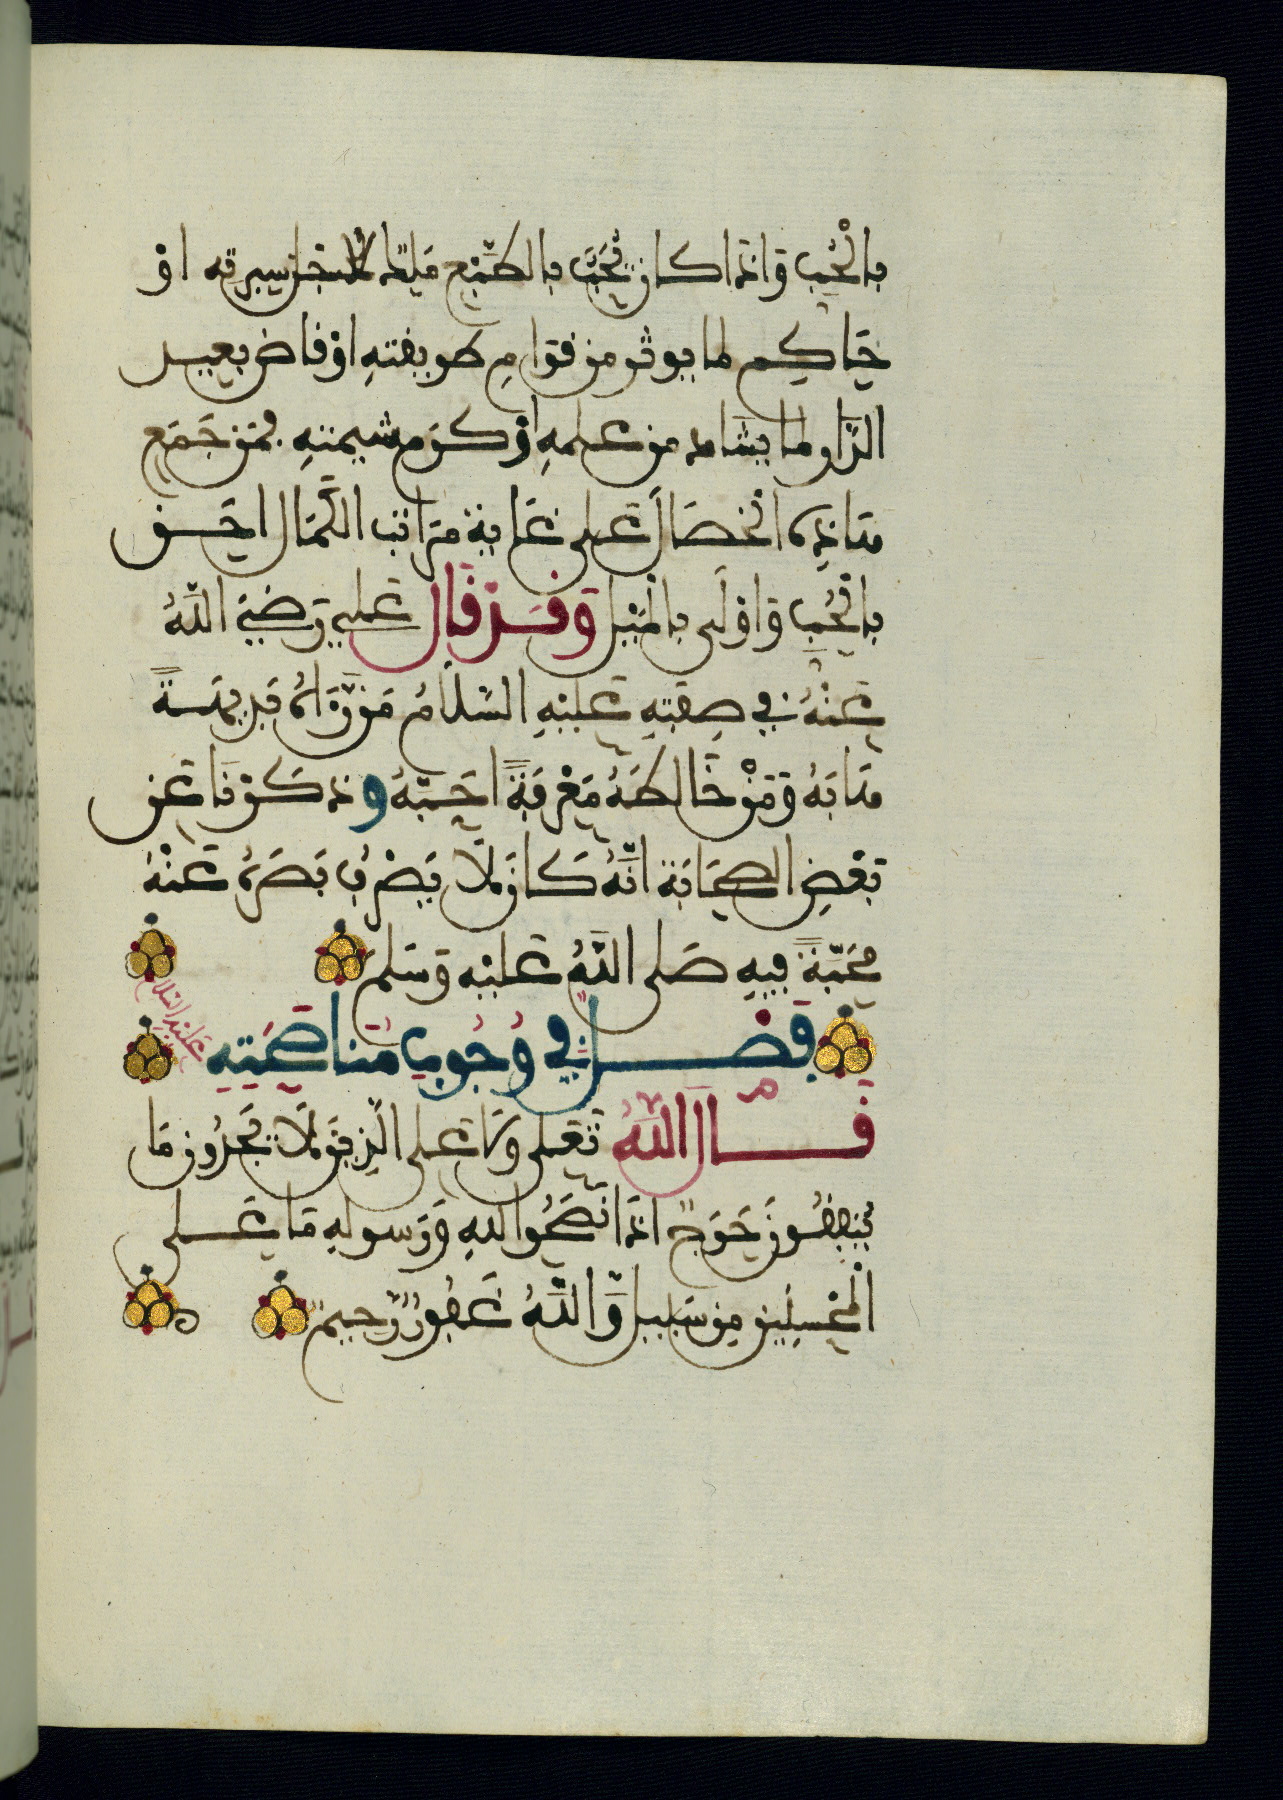 بالحب واذا كان يحب بالطبع ملك لحسن سيرته او
حاكم لما يوثر من قوام طريقته او قاض بعيد
الدار لما يشاد من علمه او كرم شيمته بمن جمع
هاذه الخصال على غاية مراتب الكمال احق
بالحب واولى بالميل وقد قال علي رضي الله
عنه في صفته عليه السلام من رءاه بديهة
هابه ومن خالطه معرفة احبه وذكرنا عن
بعض الصحابة انه كان لا يصرف بصره عنه
محبة فيه صلى الله عليه وسلم
فصل في وجوب مناصحته عليه السلام
قال الله تعلى ولا على الذين لا يجدون ما
ينفقون حرج اذا نصحوا لله ورسوله ما على
المحسنين من سبيل والله غفور رحيم